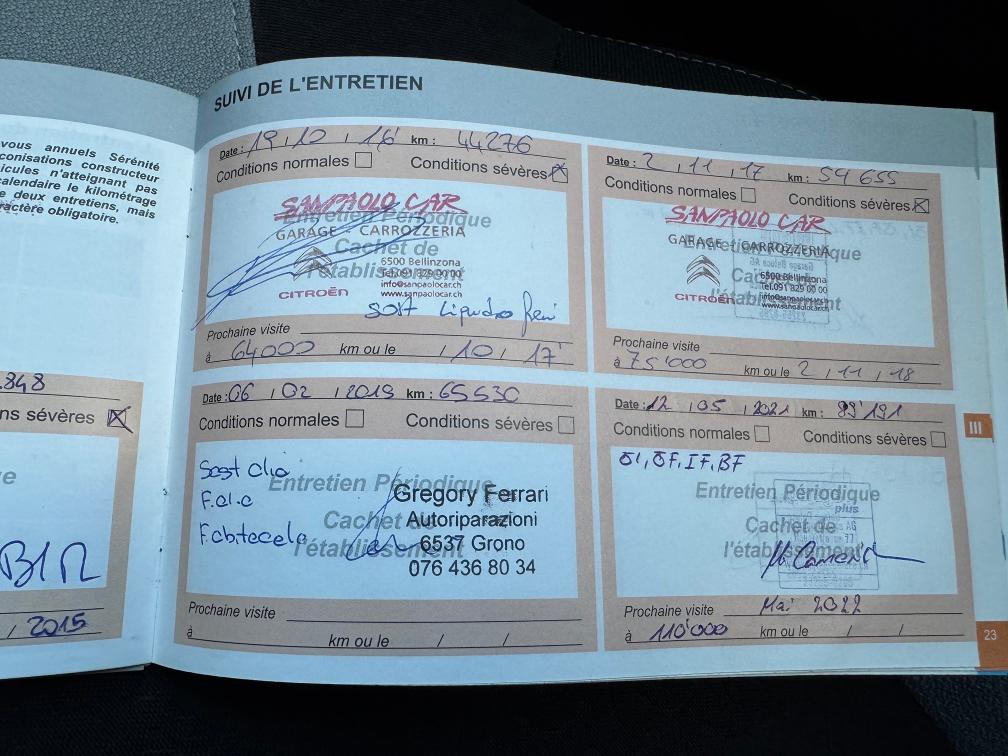 vous annuels Sérénité
conisations constructeur
icules n'atteignant pas
calendaire le kilométrage
e deux entretiens, mais
ractère obligatoire.
.848
ns sévères
e
/ 2015
SUIVI DE L'ENTRETIEN
Date : 19 / 10 / 16 km : 44276
Conditions normales Conditions sévères
SANPAOLO CAR
Entretien Périodique
GARAGE - CARROZZERIA
Cachet de
l'établissement
6500 Bellinzona
Tel.091 829 00 00
info@sanpaolocar.ch
CITROËN www.sanpaolocar.ch
Prochaine visite
à 64000 km ou le / 10 / 17
Date : 2 / 11 / 17 km : 54 655
Conditions normales Conditions sévères
SANPAOLO CAR
GARAGE - CARROZZERIA
Entretien Périodique
Cachet de
l'établissement
6500 Bellinzona
Tel.091 829 00 00
info@sanpaolocar.ch
CITROËN www.sanpaolocar.ch
Prochaine visite
à 75'000 km ou le 2 / 11 / 18
Date : 06 / 02 / 2019 km : 65530
Conditions normales Conditions sévères
Entretien Périodique
Cachet de
l'établissement
Gregory Ferrari
Autoriparazioni
6537 Grono
076 436 80 34
Prochaine visite
à km ou le / /
Date : 12 / 05 / 2021 km : 89'191
Conditions normales Conditions sévères
ÖF, IF, BF
Entretien Périodique
plus
Cachet de
l'établissement
Prochaine visite Mai 2022
à 110'000 km ou le / /
III
23